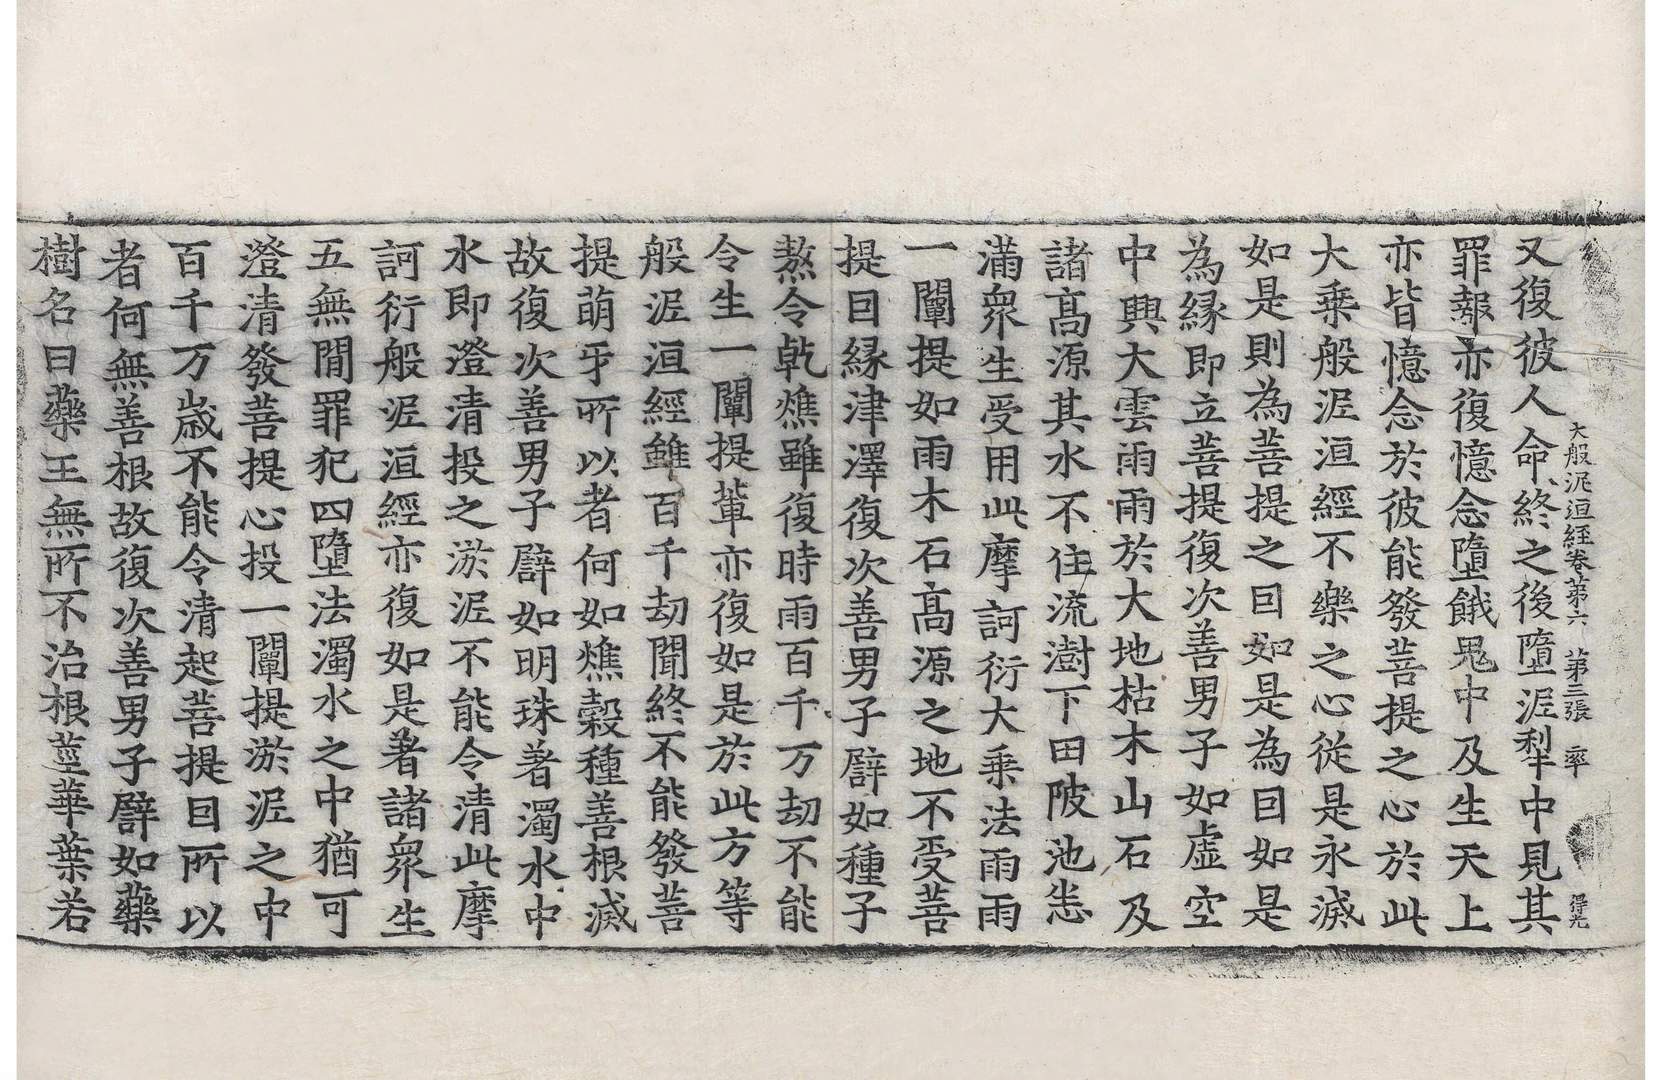 大般泥洹經卷第六　第三張　率　得光
又復彼人命終之後墮泥犁中見其
罪報亦復憶念墮餓鬼中及生天上
亦皆憶念於彼能發菩提之心於此
大乘般泥洹經不樂之心從是永滅
如是則為菩提之因如是為因如是
為緣即立菩提復次善男子如虛空
中興大雲雨雨於大地枯木山石及
諸高源其水不住流澍下田陂池悉
滿衆生受用此摩訶衍大乘法雨雨
一闡提如雨木石高源之地不受菩
提因緣津澤復次善男子譬如種子
熬令乾燋雖復時雨百千万劫不能
令生一闡提輩亦復如是於此方等
般泥洹經雖百千劫聞終不能發菩
提萌牙所以者何如燋穀種善根滅
故復次善男子譬如明珠著濁水中
水即澄清投之淤泥不能令清此摩
訶衍般泥洹經亦復如是著諸衆生
五無間罪犯四墮法濁水之中猶可
澄清發菩提心投一闡提淤泥之中
百千万歲不能令清起菩提因所以
者何無善根故復次善男子譬如藥
樹名曰藥王無所不治根莖華葉若